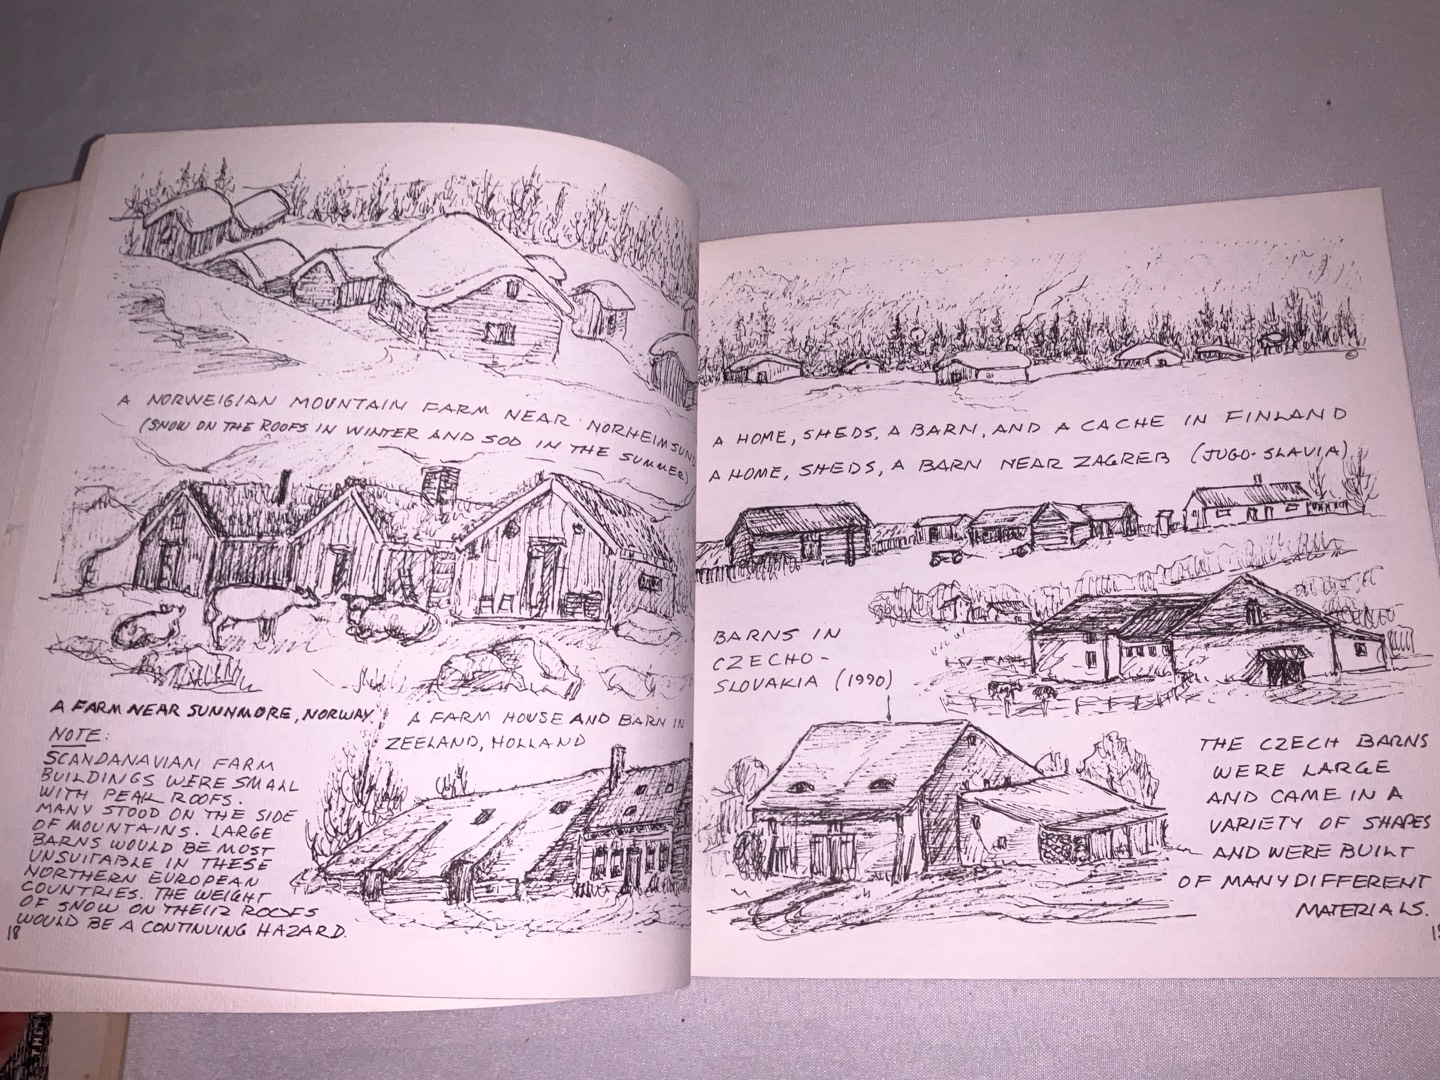 A NORWEIGIAN MOUNTAIN FARM NEAR NORHEIMSUND
(SNOW ON THE ROOFS IN WINTER AND SOD IN THE SUMMER)
A FARM NEAR SUNNMORE, NORWAY.
NOTE:
SCANDANAVIAN FARM
BUILDINGS WERE SMALL
WITH PEAK ROOFS.
MANY STOOD ON THE SIDE
OF MOUNTAINS. LARGE
BARNS WOULD BE MOST
UNSUITABLE IN THESE
NORTHERN EUROPEAN
COUNTRIES. THE WEIGHT
OF SNOW ON THEIR ROOFS
WOULD BE A CONTINUING HAZARD.
18
A FARM HOUSE AND BARN IN
ZEELAND, HOLLAND
©
A HOME, SHEDS, A BARN, AND A CACHE IN FINLAND
A HOME, SHEDS, A BARN NEAR ZAGREB (JUGO-SLAVIA)
BARNS IN
CZECHO-
SLOVAKIA (1990)
THE CZECH BARNS
WERE LARGE
AND CAME IN A
VARIETY OF SHAPES
AND WERE BUILT
OF MANY DIFFERENT
MATERIALS.